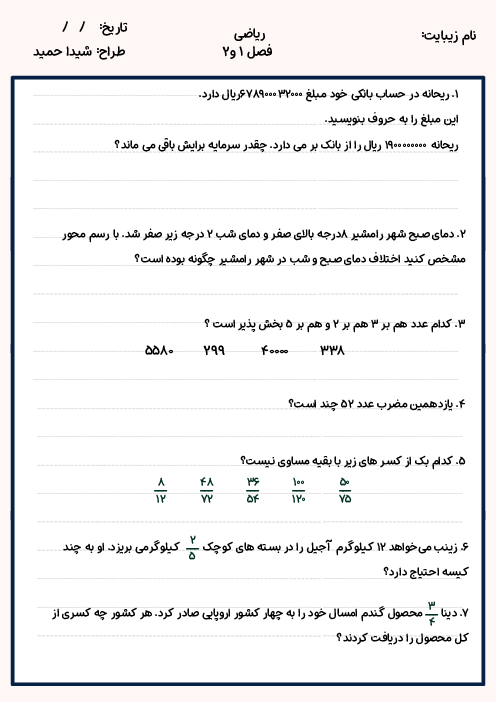 نام زیبایت:
ریاضی
فصل ۱ و۲
تاریخ: / /
طراح: شیدا حمید
۱. ریحانه در حساب بانکی خود مبلغ ۶۷۸۹۰۰۰۳۲۰۰۰ریال دارد.
این مبلغ را به حروف بنویسید.
ریحانه ۱۹۰۰۰۰۰۰۰۰ ریال را از بانک بر می دارد. چقدر سرمایه برایش باقی می ماند؟
۲. دمای صبح شهر رامشیر ۸درجه بالای صفر و دمای شب ۲ درجه زیر صفر شد. با رسم محور
مشخص کنید اختلاف دمای صبح و شب در شهر رامشیر چگونه بوده است؟
۳. کدام عدد هم بر ۳ هم بر ۲ و هم بر ۵ بخش پذیر است ؟
۳۳۸ ۴۰۰۰۰ ۲۹۹ ۵۵۸۰
۴. یازدهمین مضرب عدد ۵۲ چند است؟
۵. کدام یک از کسر های زیر با بقیه مساوی نیست؟
۵۰/۷۵ ۱۰۰/۱۲۰ ۳۶/۵۴ ۴۸/۷۲ ۸/۱۲
۶. زینب می‌خواهد ۱۲ کیلوگرم آجیل را در بسته های کوچک ۲/۵ کیلوگرمی بریزد. او به چند
کیسه احتیاج دارد؟
۷. دینا ۳/۴ محصول گندم امسال خود را به چهار کشور اروپایی صادر کرد. هر کشور چه کسری از
کل محصول را دریافت کردند؟